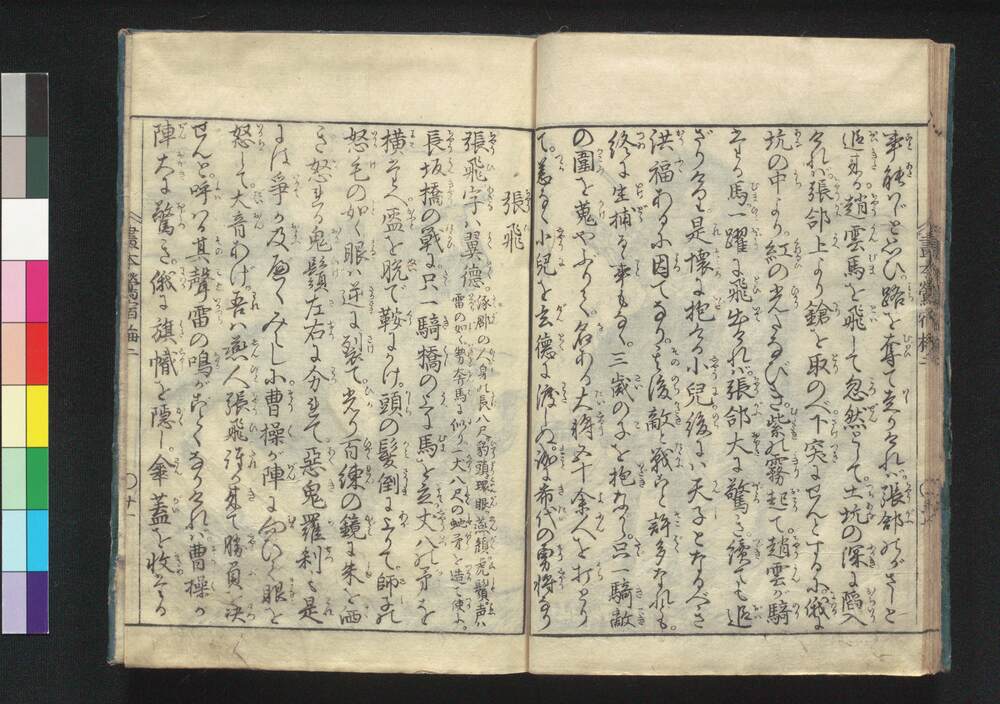 事能じと思ひ路を奪て走りければ張郃のがさじと
追来る趙雲馬を飛して忽然として土坑の深に陷入
ければ張郃上より鎗を取のべ下突にせんとするに俄に
坑の中より紅の光たなびき紫の霧起て趙雲が騎
そる馬一躍に飛出ければ張郃大に驚き續ても追
ざりける是懐に抱ける小兒後には天子となるべき
洪福あるに因てなり其後敵と戦こと許多なれども
終に生捕る事もなく三歳の子を抱ながら只一騎敵
の圍を蒐やぶりて名ある大将五十余人を打とり
て恙なく小兒を玄德に渡しぬ誠に希代の勇将なり
張飛
張飛字は翼德
涿郡の人身の長八尺豹頭環眼燕頷虎鬚声は
雷の如く勢奔馬に似り一丈八尺の蛇矛を造て使ふ
長坂橋の戦に只一騎橋の上に馬を立丈八の矛を
横たへ盔を脱で鞍にかけ頭の髪倒に立て師子の
怒毛の如く眼は逆に裂て光り百練の鏡に朱を洒
き怒れる鬼鬚左右に分れて惡鬼羅刹も是
には爭か及べくみへしに曹操が陣に向ひて眼を
怒して大音あげ吾は燕人張飛誰か来て勝負を决
せんと呼はる其聲雷の鳴がごとくなりければ曹操が
陣大に驚き俄に旗幟を隱し傘蓋を收そる
畫本鶯宿梅二
〇十一